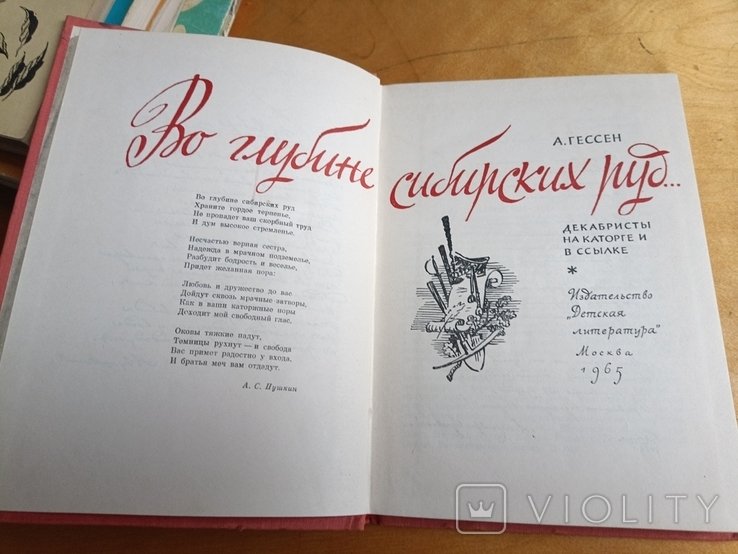 Во глубине сибирских руд...
Во глубине сибирских руд
Храните гордое терпенье,
Не пропадет ваш скорбный труд
И дум высокое стремленье.
Несчастью верная сестра,
Надежда в мрачном подземелье,
Разбудит бодрость и веселье,
Придет желанная пора:
Любовь и дружество до вас
Дойдут сквозь мрачные затворы,
Как в ваши каторжные норы
Доходит мой свободный глас.
Оковы тяжкие падут,
Темницы рухнут — и свобода
Вас примет радостно у входа.
И братья меч вам отдадут.
А. С. Пушкин
А. ГЕССЕН
ДЕКАБРИСТЫ
НА КАТОРГЕ И
В ССЫЛКЕ
*
Издательство
„Детская
литература"
Москва
1965
VIOLITY